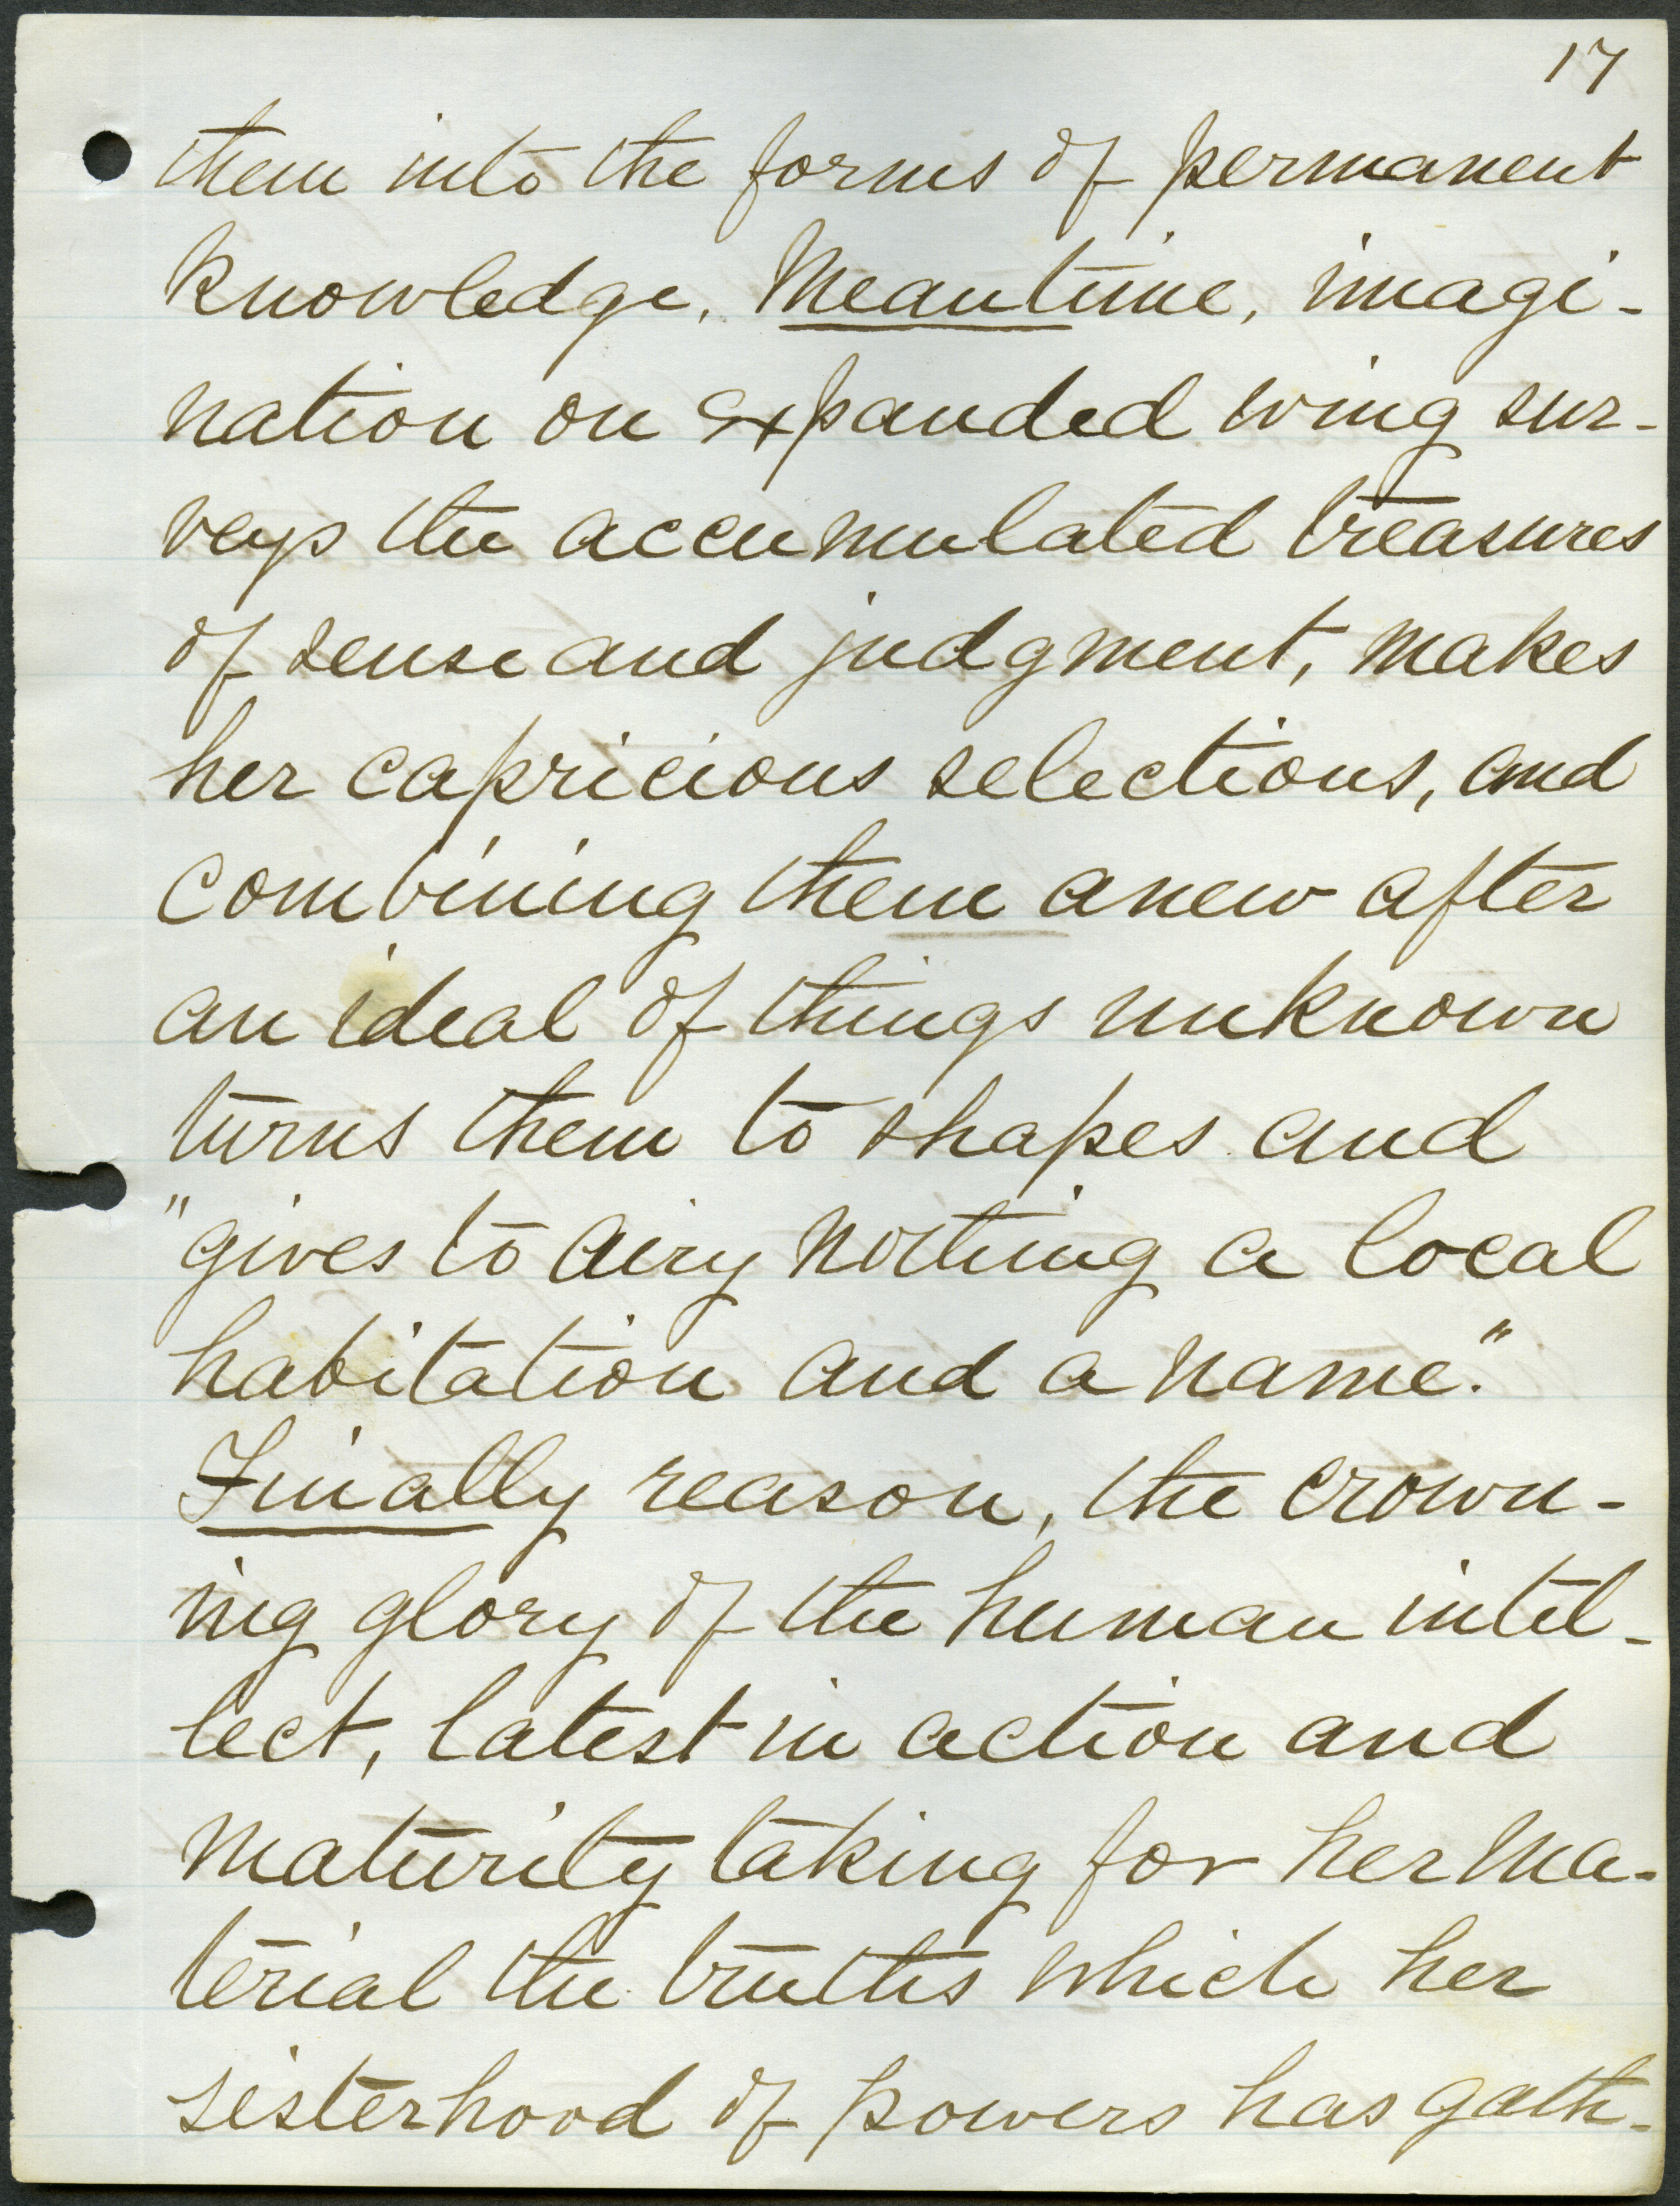 17
them into the forms of permanent
knowledge. Meantime, imagi-
nation on expanded wing sur-
veys the accumulated treasures
of sense and judgment, makes
her capricious selections, and
combining them anew after
an ideal of things unknown
turns them to shapes and
"gives to airy nothing a local
habitation and a name."
Finally reason, the crown-
ing glory of the human intel-
lect, latest in action and
maturity taking for her ma-
terial the truths which her
sisterhood of powers has gath-